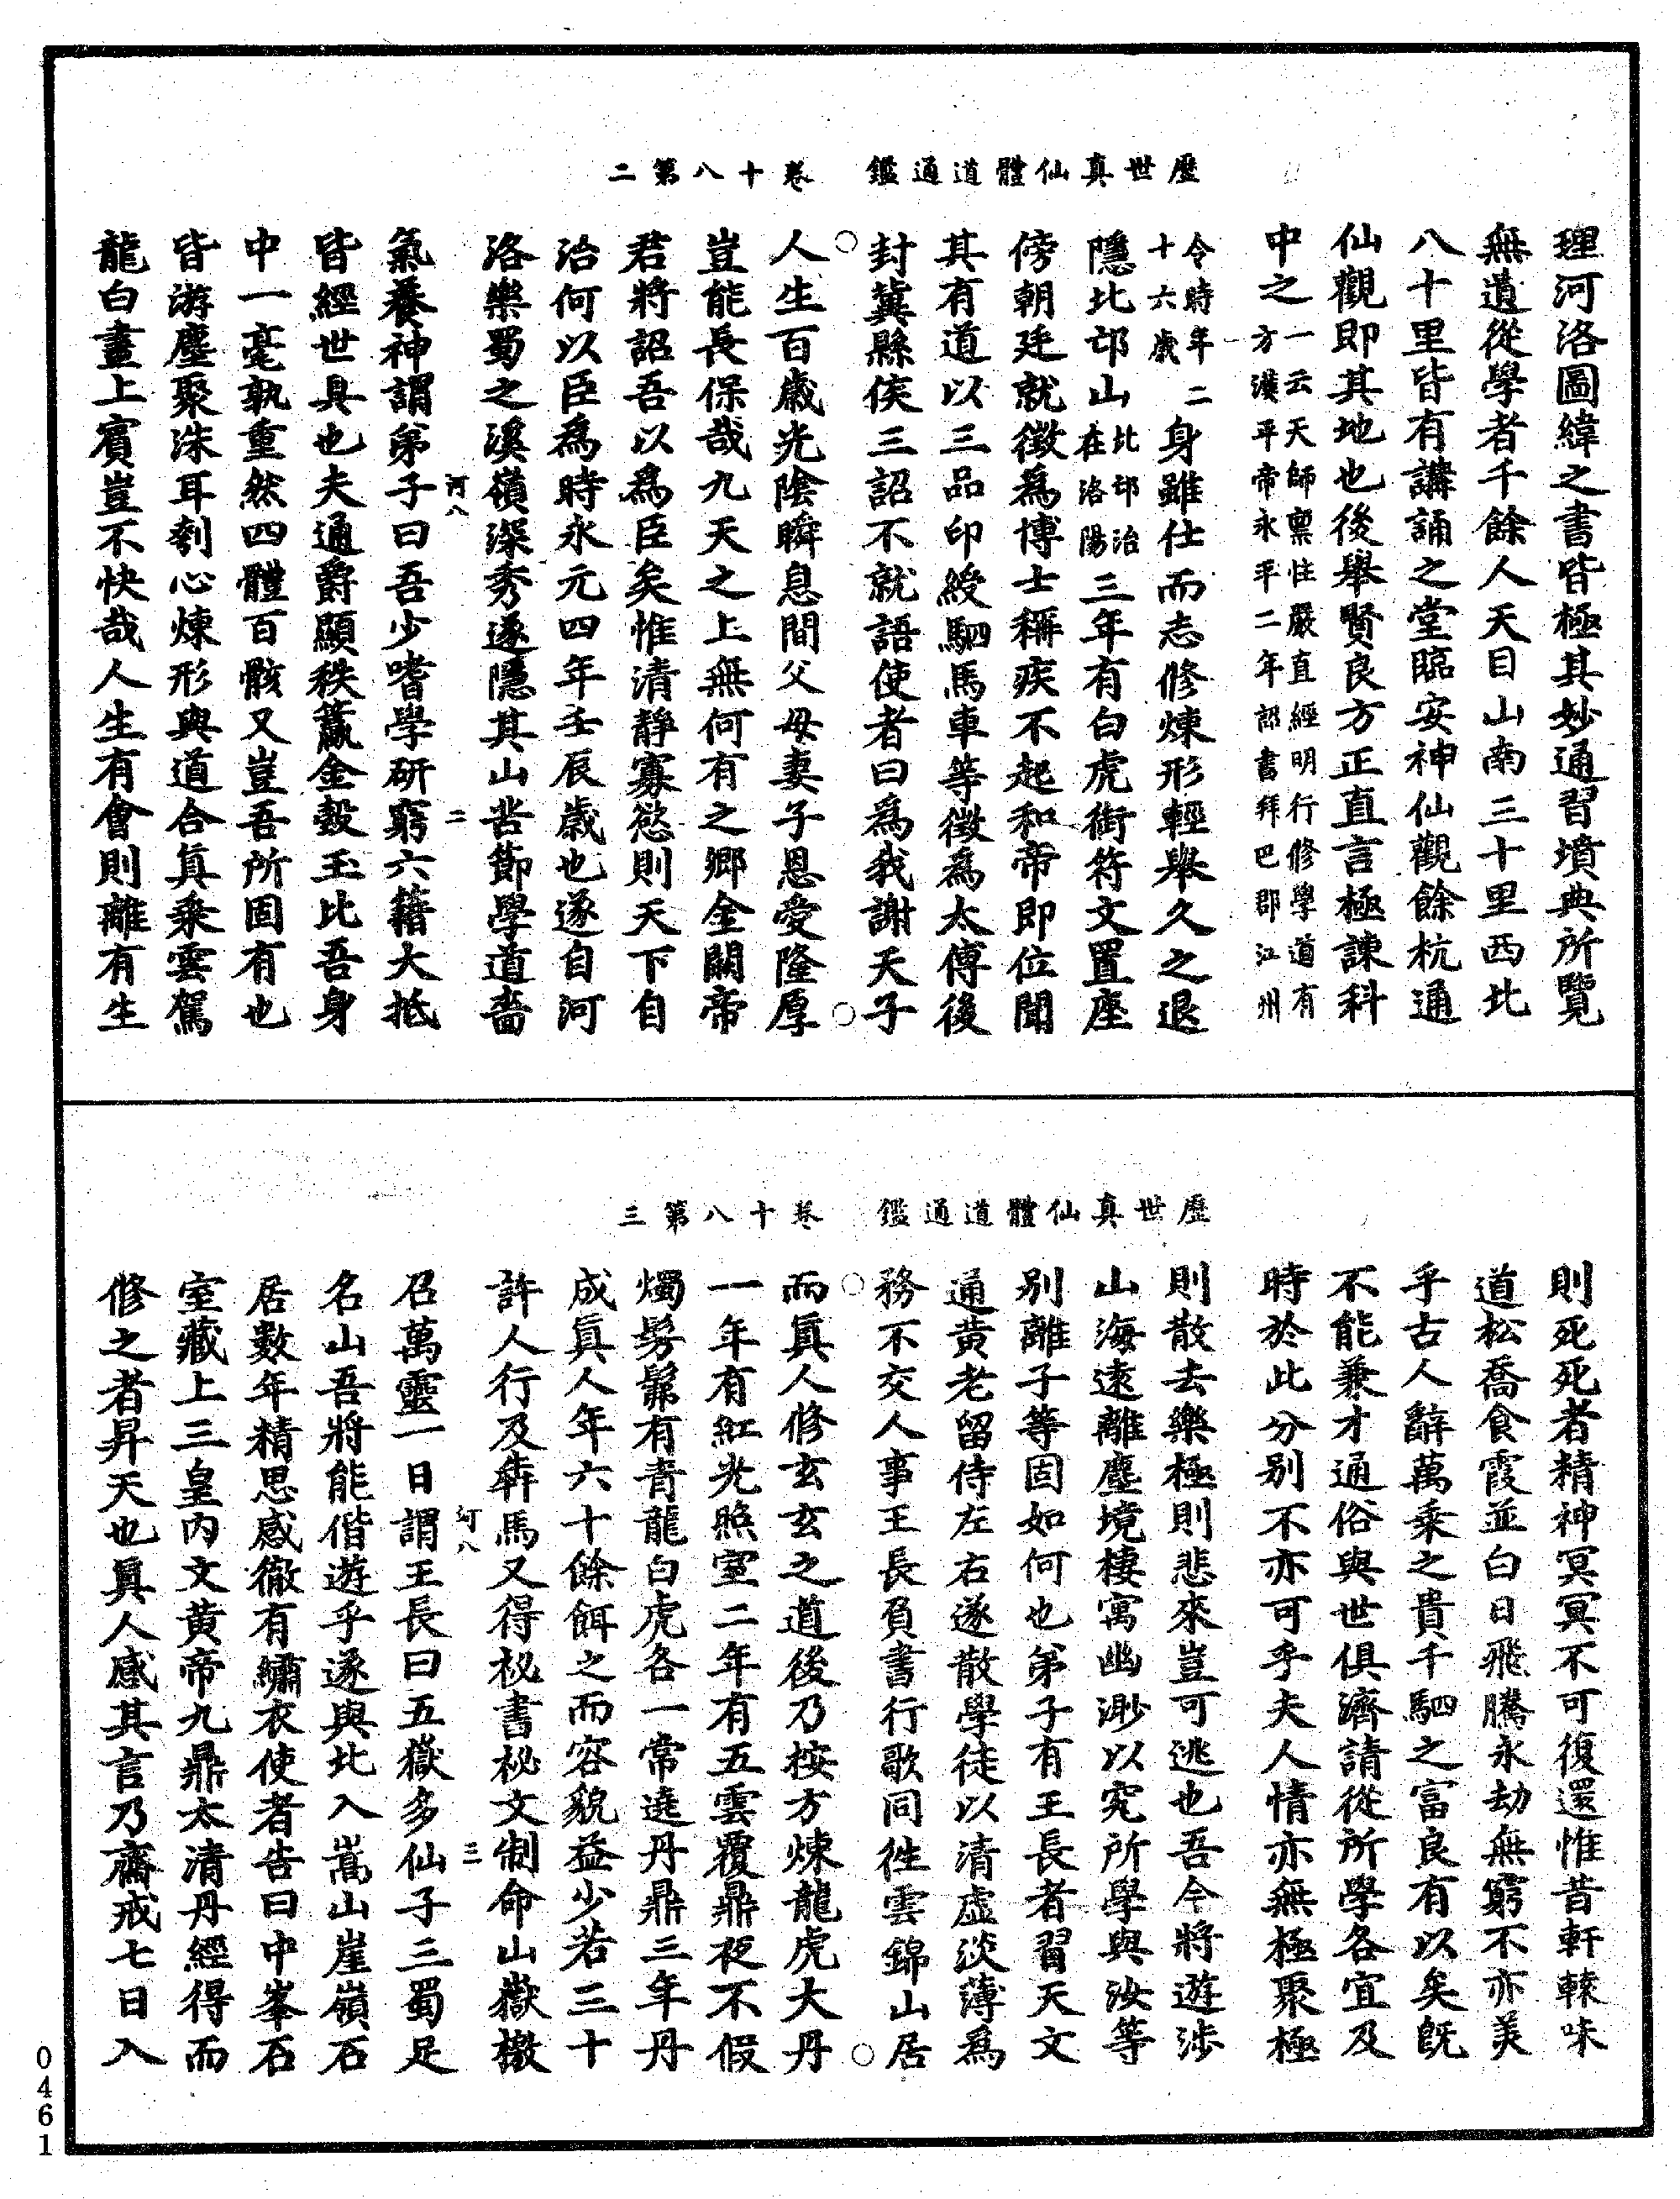 歷世真仙體道通鑑　卷十八第二
理河洛圖緯之書皆極其妙通習墳典所覽
無遺從學者千餘人天目山南三十里西北
八十里皆有講誦之堂臨安神仙觀餘杭通
仙觀即其地也後舉賢良方正直言極諫科
中之一云天師稟性嚴直經明行修學道有
方漢平帝永平二年詔書拜巴郡江州
令時年二
十六歲
身雖仕而志修煉形輕舉久之退
隱北邙山北邙治
在洛陽
三年有白虎銜符文置座
傍朝廷就徵為博士稱疾不起和帝即位聞
其有道以三品印綬駟馬車等徵為太傅後
封冀縣侯三詔不就語使者曰為我謝天子
人生百歲光陰瞬息間父母妻子恩愛隆厚
豈能長保哉九天之上無何有之鄉金闕帝
君將詔吾以為臣矣惟清靜寡慾則天下自
治何以臣為時永元四年壬辰歲也遂自河
洛樂蜀之溪嶺深秀遂隱其山苦節學道嗇
河八　二
氣養神謂弟子曰吾少嗜學研窮六籍大抵
皆經世具也夫通爵顯秩籯金瑴玉比吾身
中一毫孰重然四體百骸又豈吾所固有也
皆游塵聚沫耳刳心煉形與道合真乘雲駕
龍白晝上賓豈不快哉人生有會則離有生
歷世真仙體道通鑑　卷十八第三
則死死者精神冥冥不可復還惟昔軒轅味
道松喬食霞並白日飛騰永劫無窮不亦美
乎古人辭萬乘之貴千駟之富良有以矣既
不能兼才通俗與世俱濟請從所學各宜及
時於此分別不亦可乎夫人情亦無極聚極
則散去樂極則悲來豈可逃也吾今將遊涉
山海遠離塵境棲寓幽渺以究所學與汝等
別離子等固如何也弟子有王長者習天文
通黃老留侍左右遂散學徒以清虛淡薄為
務不交人事王長負書行歌同往雲錦山居
而真人修玄玄之道後乃按方煉龍虎大丹
一年有紅光照室二年有五雲覆鼎夜不假
燭髣髴有青龍白虎各一常遶丹鼎三年丹
成真人年六十餘餌之而容貌益少若三十
許人行及犇馬又得祕書祕文制命山嶽檄
河八　三
召萬靈一日謂王長曰五嶽多仙子三蜀足
名山吾將能偕遊乎遂與北入嵩山崖嶺石
居數年精思感徹有繡衣使者告曰中峯石
室藏上三皇內文黃帝九鼎太清丹經得而
修之者昇天也真人感其言乃齋戒七日入
0461